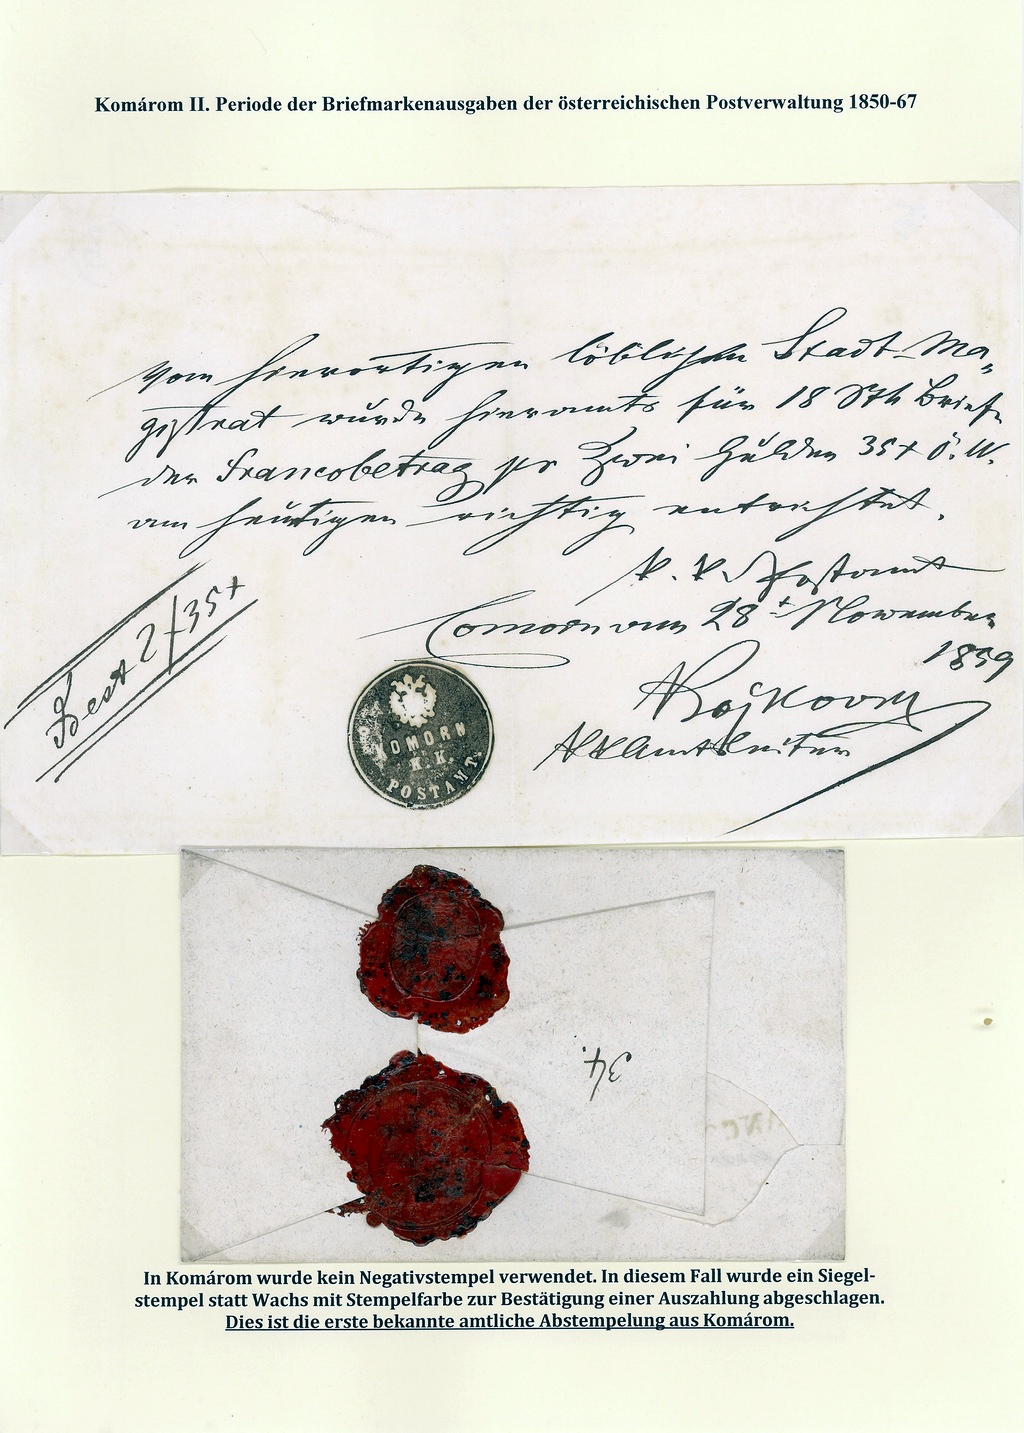 Komárom II. Periode der Briefmarkenausgaben der österreichischen Postverwaltung 1850-67
Vom hierortigen löblichen Stadt-Ma-
gistrat wurde hieramts für 18 Stk Briefe
der Francobetrag pr Zwei Gulden 35 x Ö.W.
am heutigen richtig entrichtet.
K. K. Postamt
Comorn am 28t November
1859
2f 35x
KOMORN
K.K.
POSTAMT.
34.
In Komárom wurde kein Negativstempel verwendet. In diesem Fall wurde ein Siegel-
stempel statt Wachs mit Stempelfarbe zur Bestätigung einer Auszahlung abgeschlagen.
Dies ist die erste bekannte amtliche Abstempelung aus Komárom.